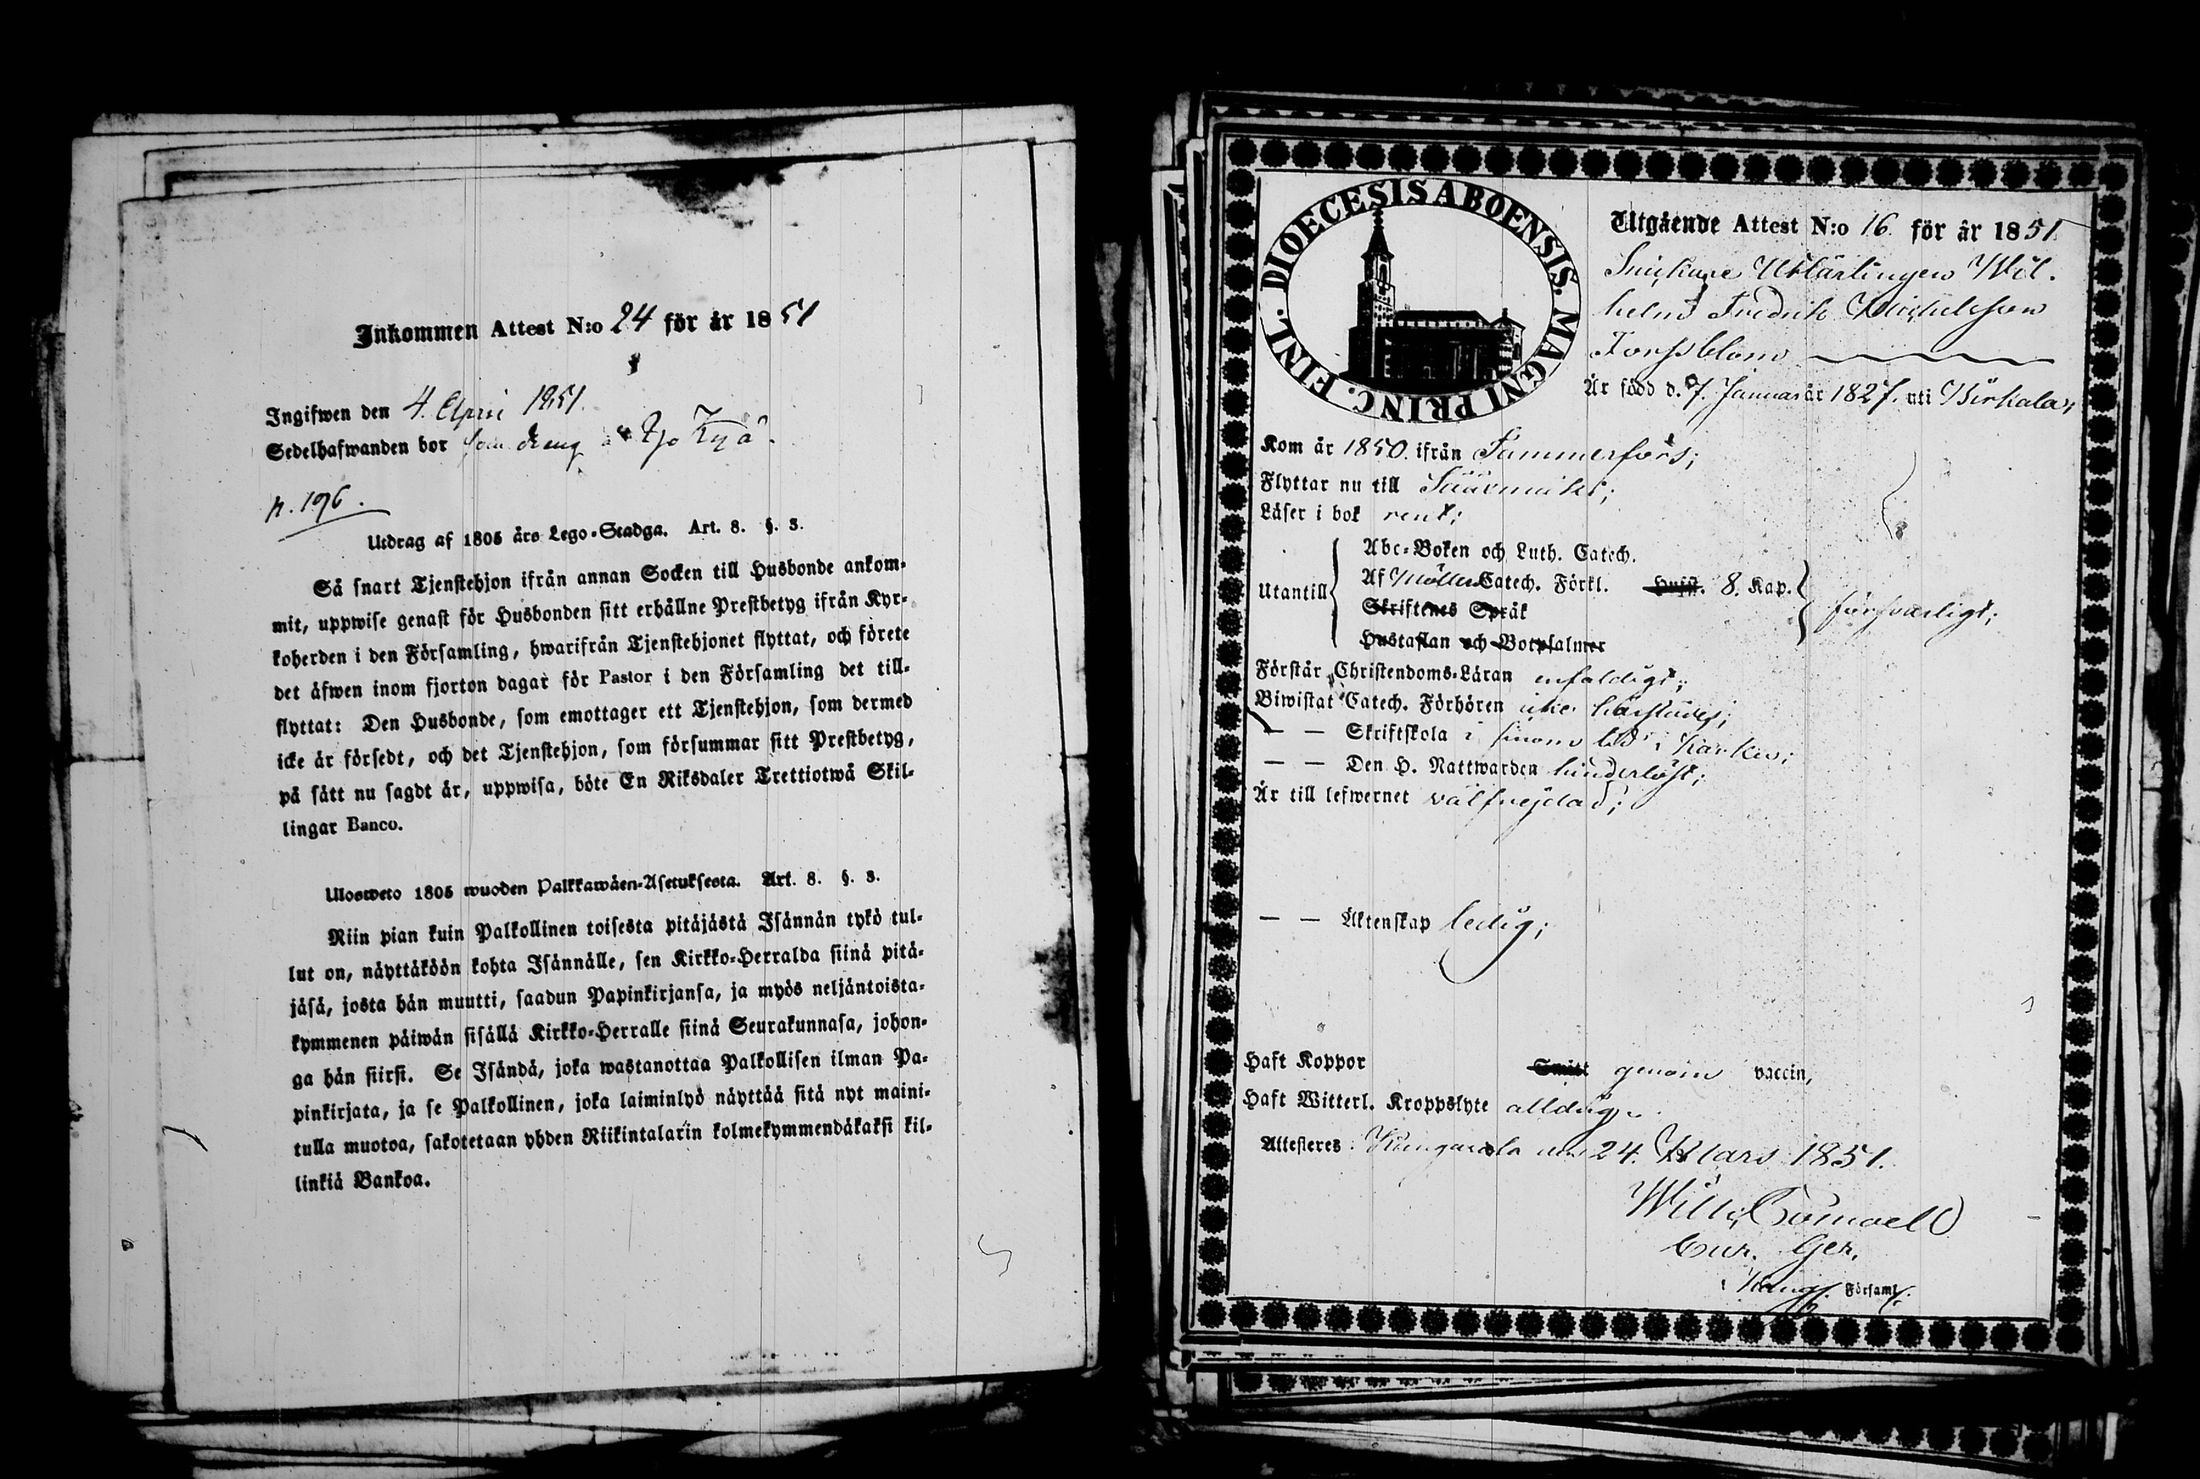 Inkommen Attest N:o 24 för år 1851
Ingifwen den 4. April 1851.
Sedelhafwanden bor som dreng å
p. 196.
Utdrag af 1805 års Lego-Stadga. Art. 8. §. 3.
Så snart Tjenstehjon ifrån annan Socken till Husbonde ankom-
mit, uppwise genast för Husbonden sitt erhållne Prestbetyg ifrån Kyr-
koherden i den Församling, hwarifrån Tjenstehjonet flyttat, och förete
det äfwen inom fjorton dagar för Pastor i den Församling det till-
flyttat: Den Husbonde, som emottager ett Tjenstehjon, som dermed
icke är försedt, och det Tjenstehjon, som försummar sitt Prestbetyg,
på sätt nu sagdt är, uppwisa, böte En Riksdaler Trettiotwå Skil-
lingar Banco.
Ulosweto 1805 wuoden Palkkawäen-Asetuksesta. Art. 8. §. 3.
Niin pian kuin Palkollinen toisesta pitäjästä Isännän tykö tul-
lut on, näyttäköön kohta Isännälle, sen Kirkko-Herralda siinä pitä-
jäsä, josta hän muutti, saadun Papinkirjansa, ja myös neljäntoista-
kymmenen päiwän sisällä Kirkko-Herralle siinä Seurakunnasa, johon-
ga hän siirsi. Se Isändä, joka wastanottaa Palkollisen ilman Pa-
pinkirjata, ja se Palkollinen, joka laiminlyö näyttää sitä nyt maini-
tulla muotoa, sakotetaan yhden Riikintalarin kolmekymmendäkaksi kil-
linkiä Bankoa.
DIOECESIS ABOENSIS. MAGNI PRINC. FINL.
Utgående Attest N:o 16 för år 1851
Snickare Utlärlingen Wil-
helm Fredrik Michelsson
Forssblom
Är född d. 7. Januari år 1827. uti Birkala;
Kom år 1850. ifrån Tammerfors;
Flyttar nu till Sääxmäki;
Läser i bok rent;
Utantill
Abc-Boken och Luth. Catech.
Af Möllers Catech. Förkl. Hufst. 8. Kap.
Skriftenes Språk
Hustaflan och Botpsalmer
försvarligt;
Förstår Christendoms-Läran enfaldigt;
Biwistat Catech. Förhören icke härstädes;
— — Skriftskola i sinom tid i Kärkis;
— — Den H. Nattwarden hinderlöst;
Är till lefwernet välfrejdad;
— — Äktenskap ledig;
Haft Koppor Smitt genom vaccin,
Haft Witterl. Kroppslyte alldrig.
Attesteres: Kangasala den 24. Mars 1851.
Cur. Ger.
i Kang. Förs​aml.